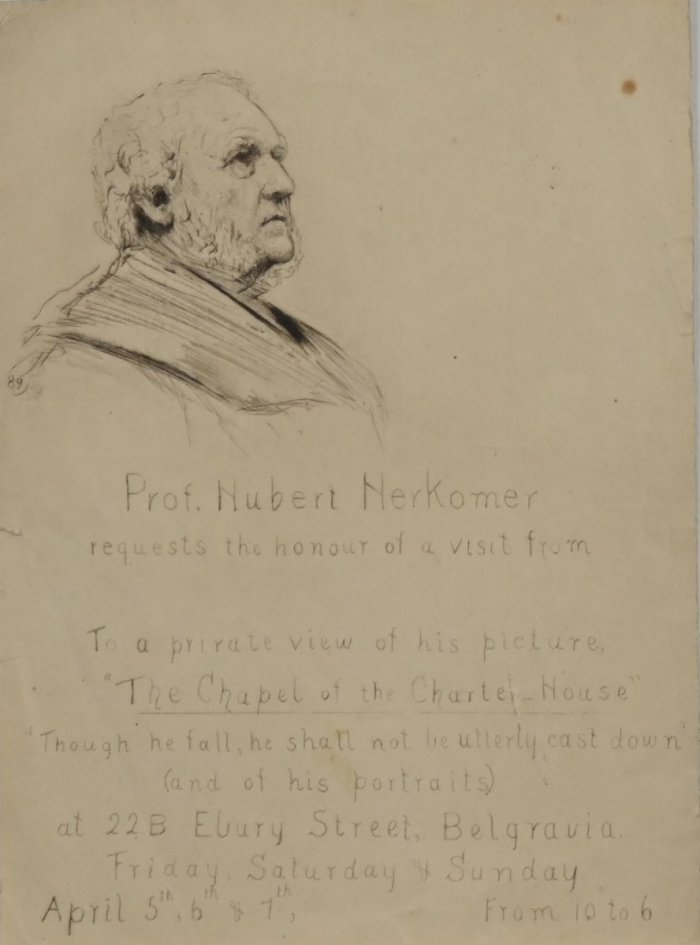 89
Prof. Hubert Herkomer
requests the honour of a visit from
To a private view of his picture,
"The Chapel of the Charter-House"
"Though he fall, he shall not be utterly cast down"
(and of his portraits)
at 22B Ebury Street, Belgravia.
Friday, Saturday & Sunday
April 5th, 6th & 7th, From 10 to 6